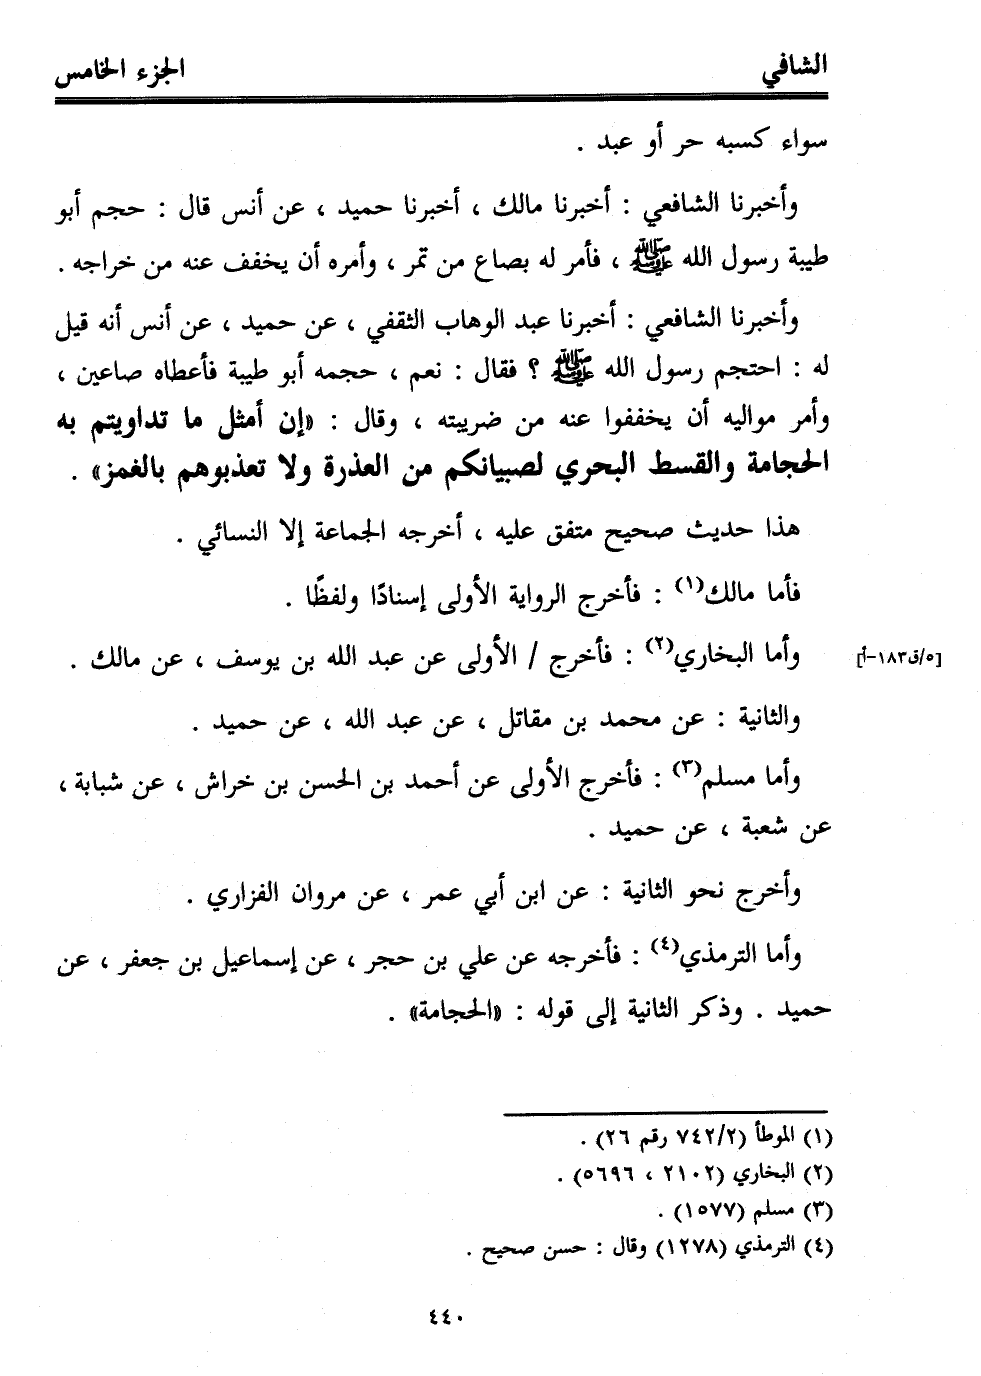 الشافي الجزء الخامس
سواء كسبه حر أو عبد .
وأخبرنا الشافعي : أخبرنا مالك ، أخبرنا حميد ، عن أنس قال : حجم أبو
طيبة رسول الله ﷺ ، فأمر له بصاع من تمر ، وأمره أن يخفف عنه من خراجه .
وأخبرنا الشافعي : أخبرنا عبد الوهاب الثقفي ، عن حميد ، عن أنس أنه قيل
له : احتجم رسول الله ﷺ ؟ فقال : نعم ، حجمه أبو طيبة فأعطاه صاعين ،
وأمر مواليه أن يخففوا عنه من ضريبته ، وقال : «إن أمثل ما تداويتم به
الحجامة والقسط البحري لصبيانكم من العذرة ولا تعذبوهم بالغمز» .
هذا حديث صحيح متفق عليه ، أخرجه الجماعة إلا النسائي .
فأما مالك(١) : فأخرج الرواية الأولى إسنادًا ولفظًا .
وأما البخاري(٢) : فأخرج / الأولى عن عبد الله بن يوسف ، عن مالك .
[٥/ق١٨٣-أ]
والثانية : عن محمد بن مقاتل ، عن عبد الله ، عن حميد .
وأما مسلم(٣) : فأخرج الأولى عن أحمد بن الحسن بن خراش ، عن شبابة ،
عن شعبة ، عن حميد .
وأخرج نحو الثانية : عن ابن أبي عمر ، عن مروان الفزاري .
وأما الترمذي(٤) : فأخرجه عن علي بن حجر ، عن إسماعيل بن جعفر ، عن
حميد . وذكر الثانية إلى قوله : «الحجامة» .
(١) الموطأ (٧٤٢/٢ رقم ٢٦) .
(٢) البخاري (٢١٠٢ ، ٥٦٩٦) .
(٣) مسلم (١٥٧٧) .
(٤) الترمذي (١٢٧٨) وقال : حسن صحيح .
٤٤٠